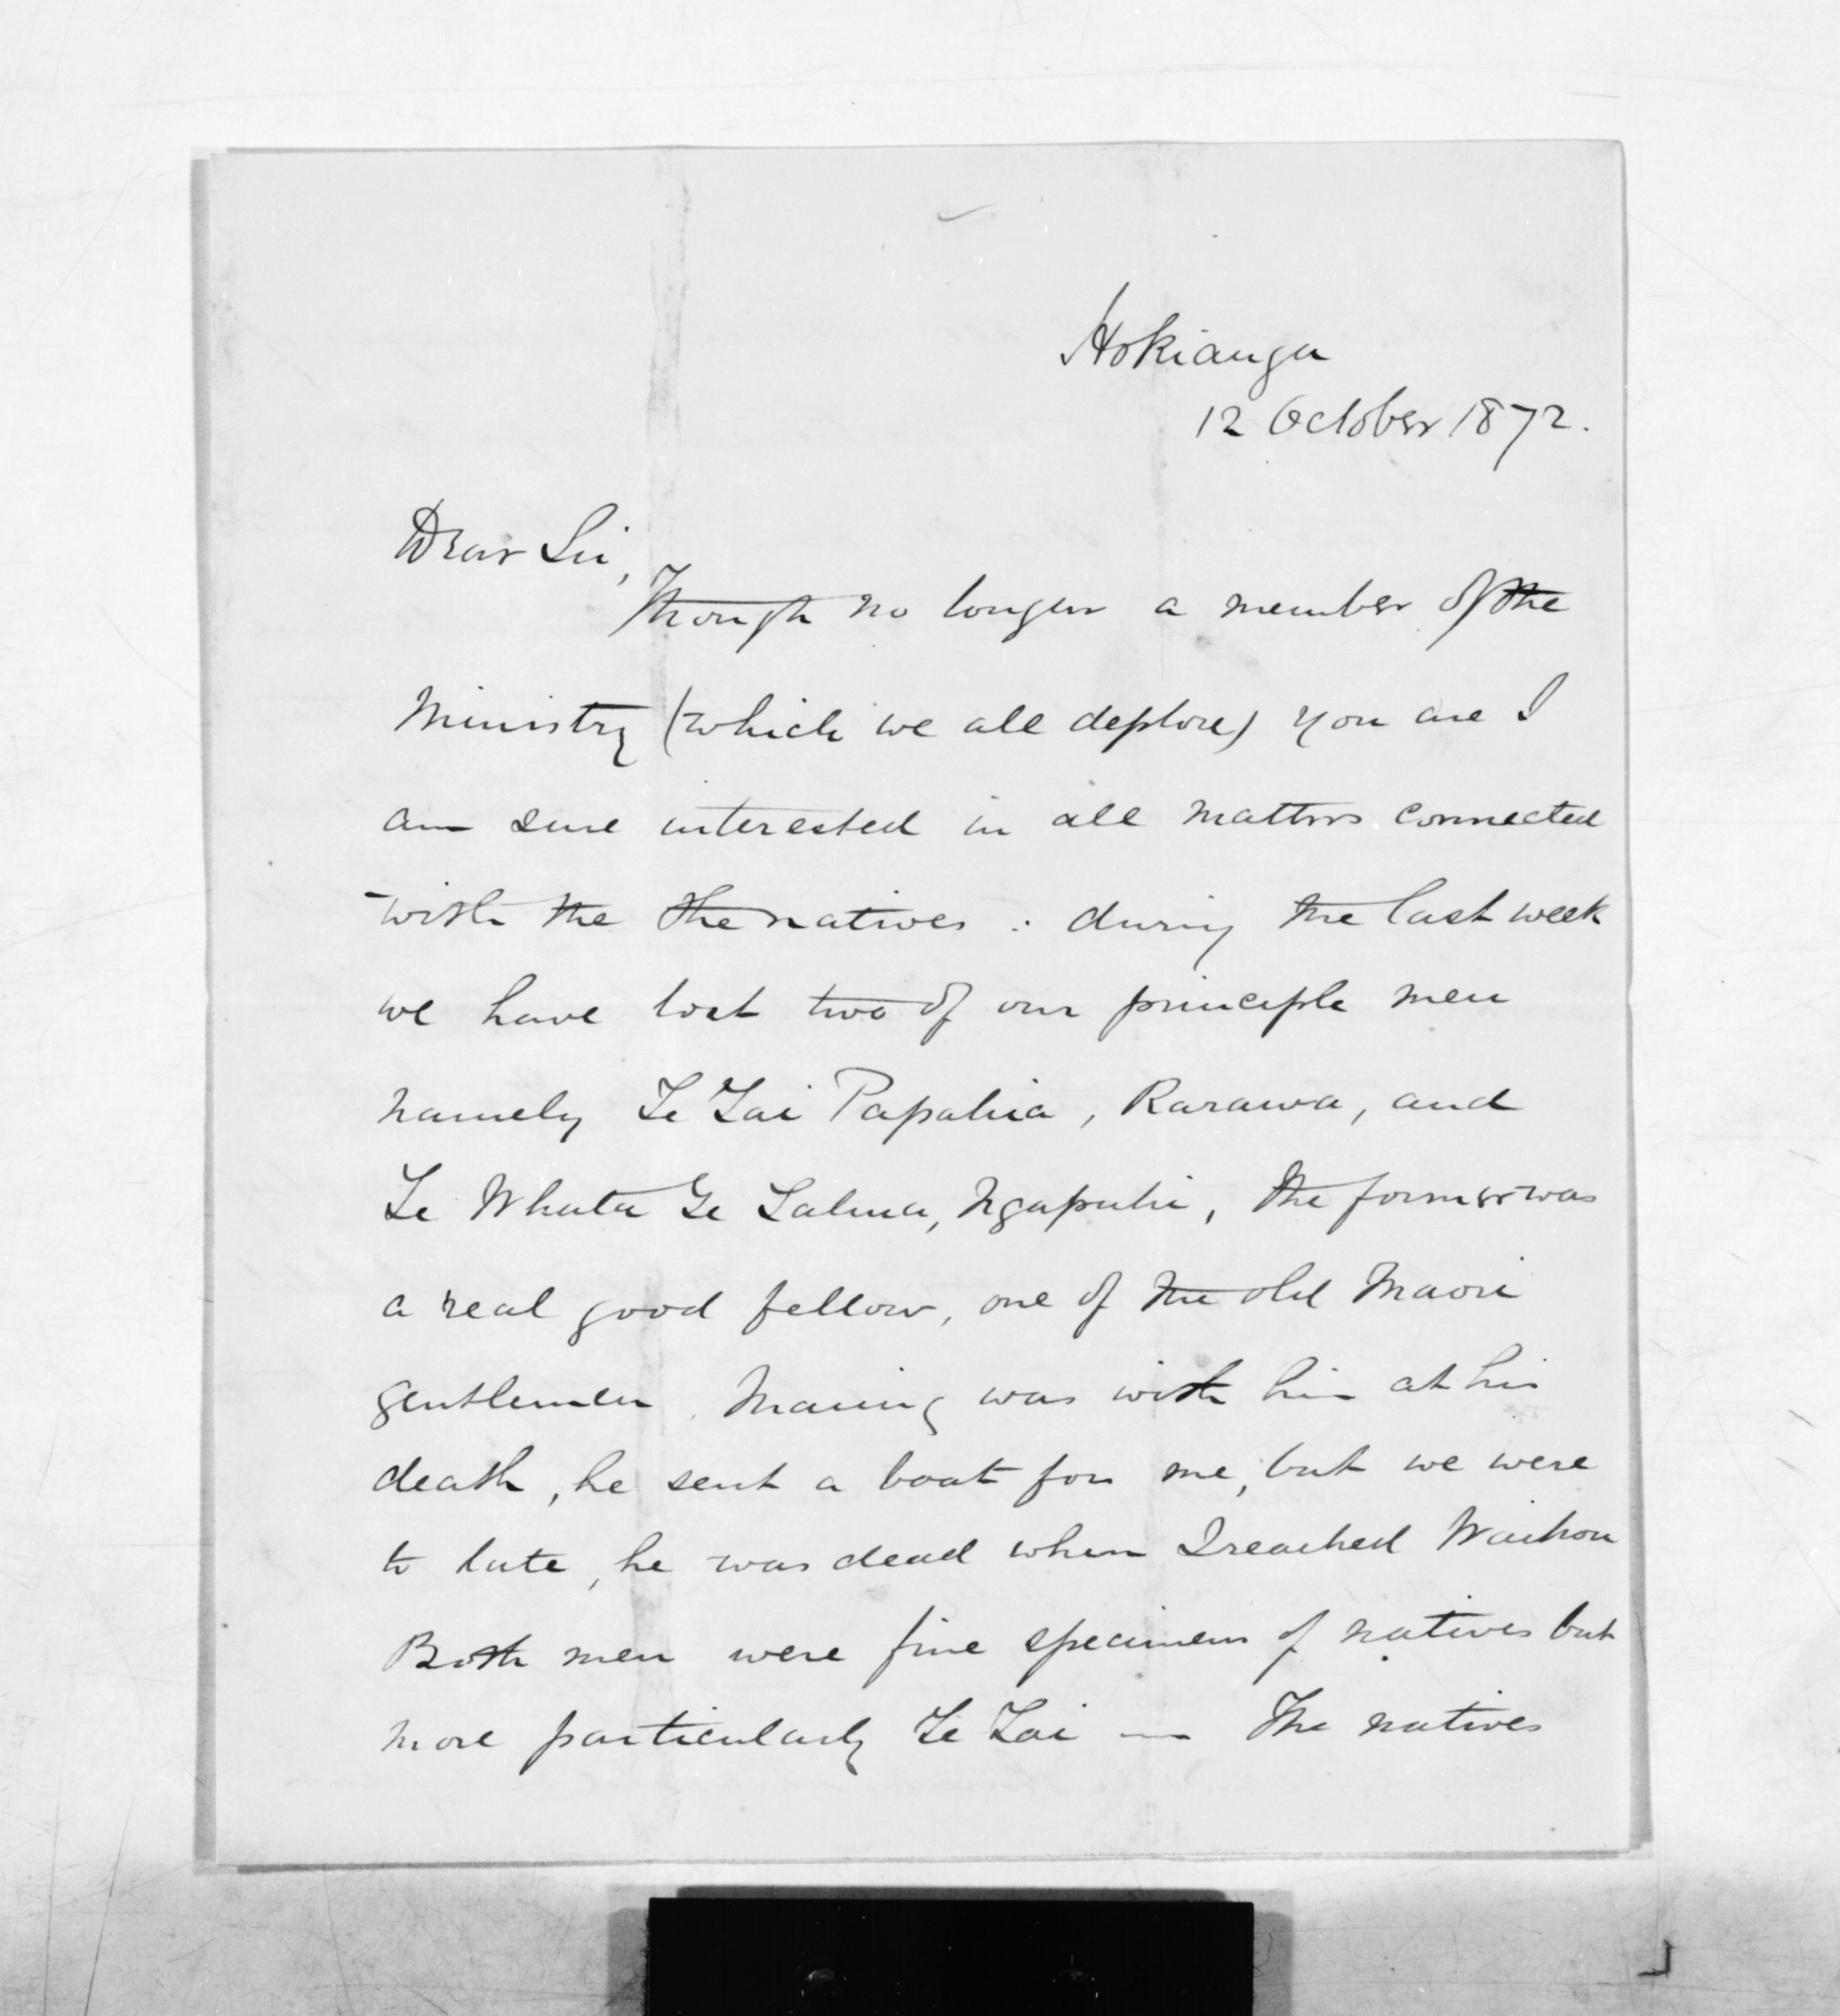 Hokianga
12 October 1872.
Dear Sir,
Though no longer a member of the
Ministry (which we all deplore) you are I
am sure interested in all matters connected
with the the natives : during the last week
we have lost two of our principle men
namely Te Tai Papahia, Rarawa, and
Te Whata Te Tahua, Ngapuhi, the former was
a real good fellow, one of the old Maori
gentlemen. Maning was with him at his
death, he sent a boat for me, but we were
to late, he was dead when I reached Waihou
Both men were fine specimens of natives but
more particularly Te Tai — The natives